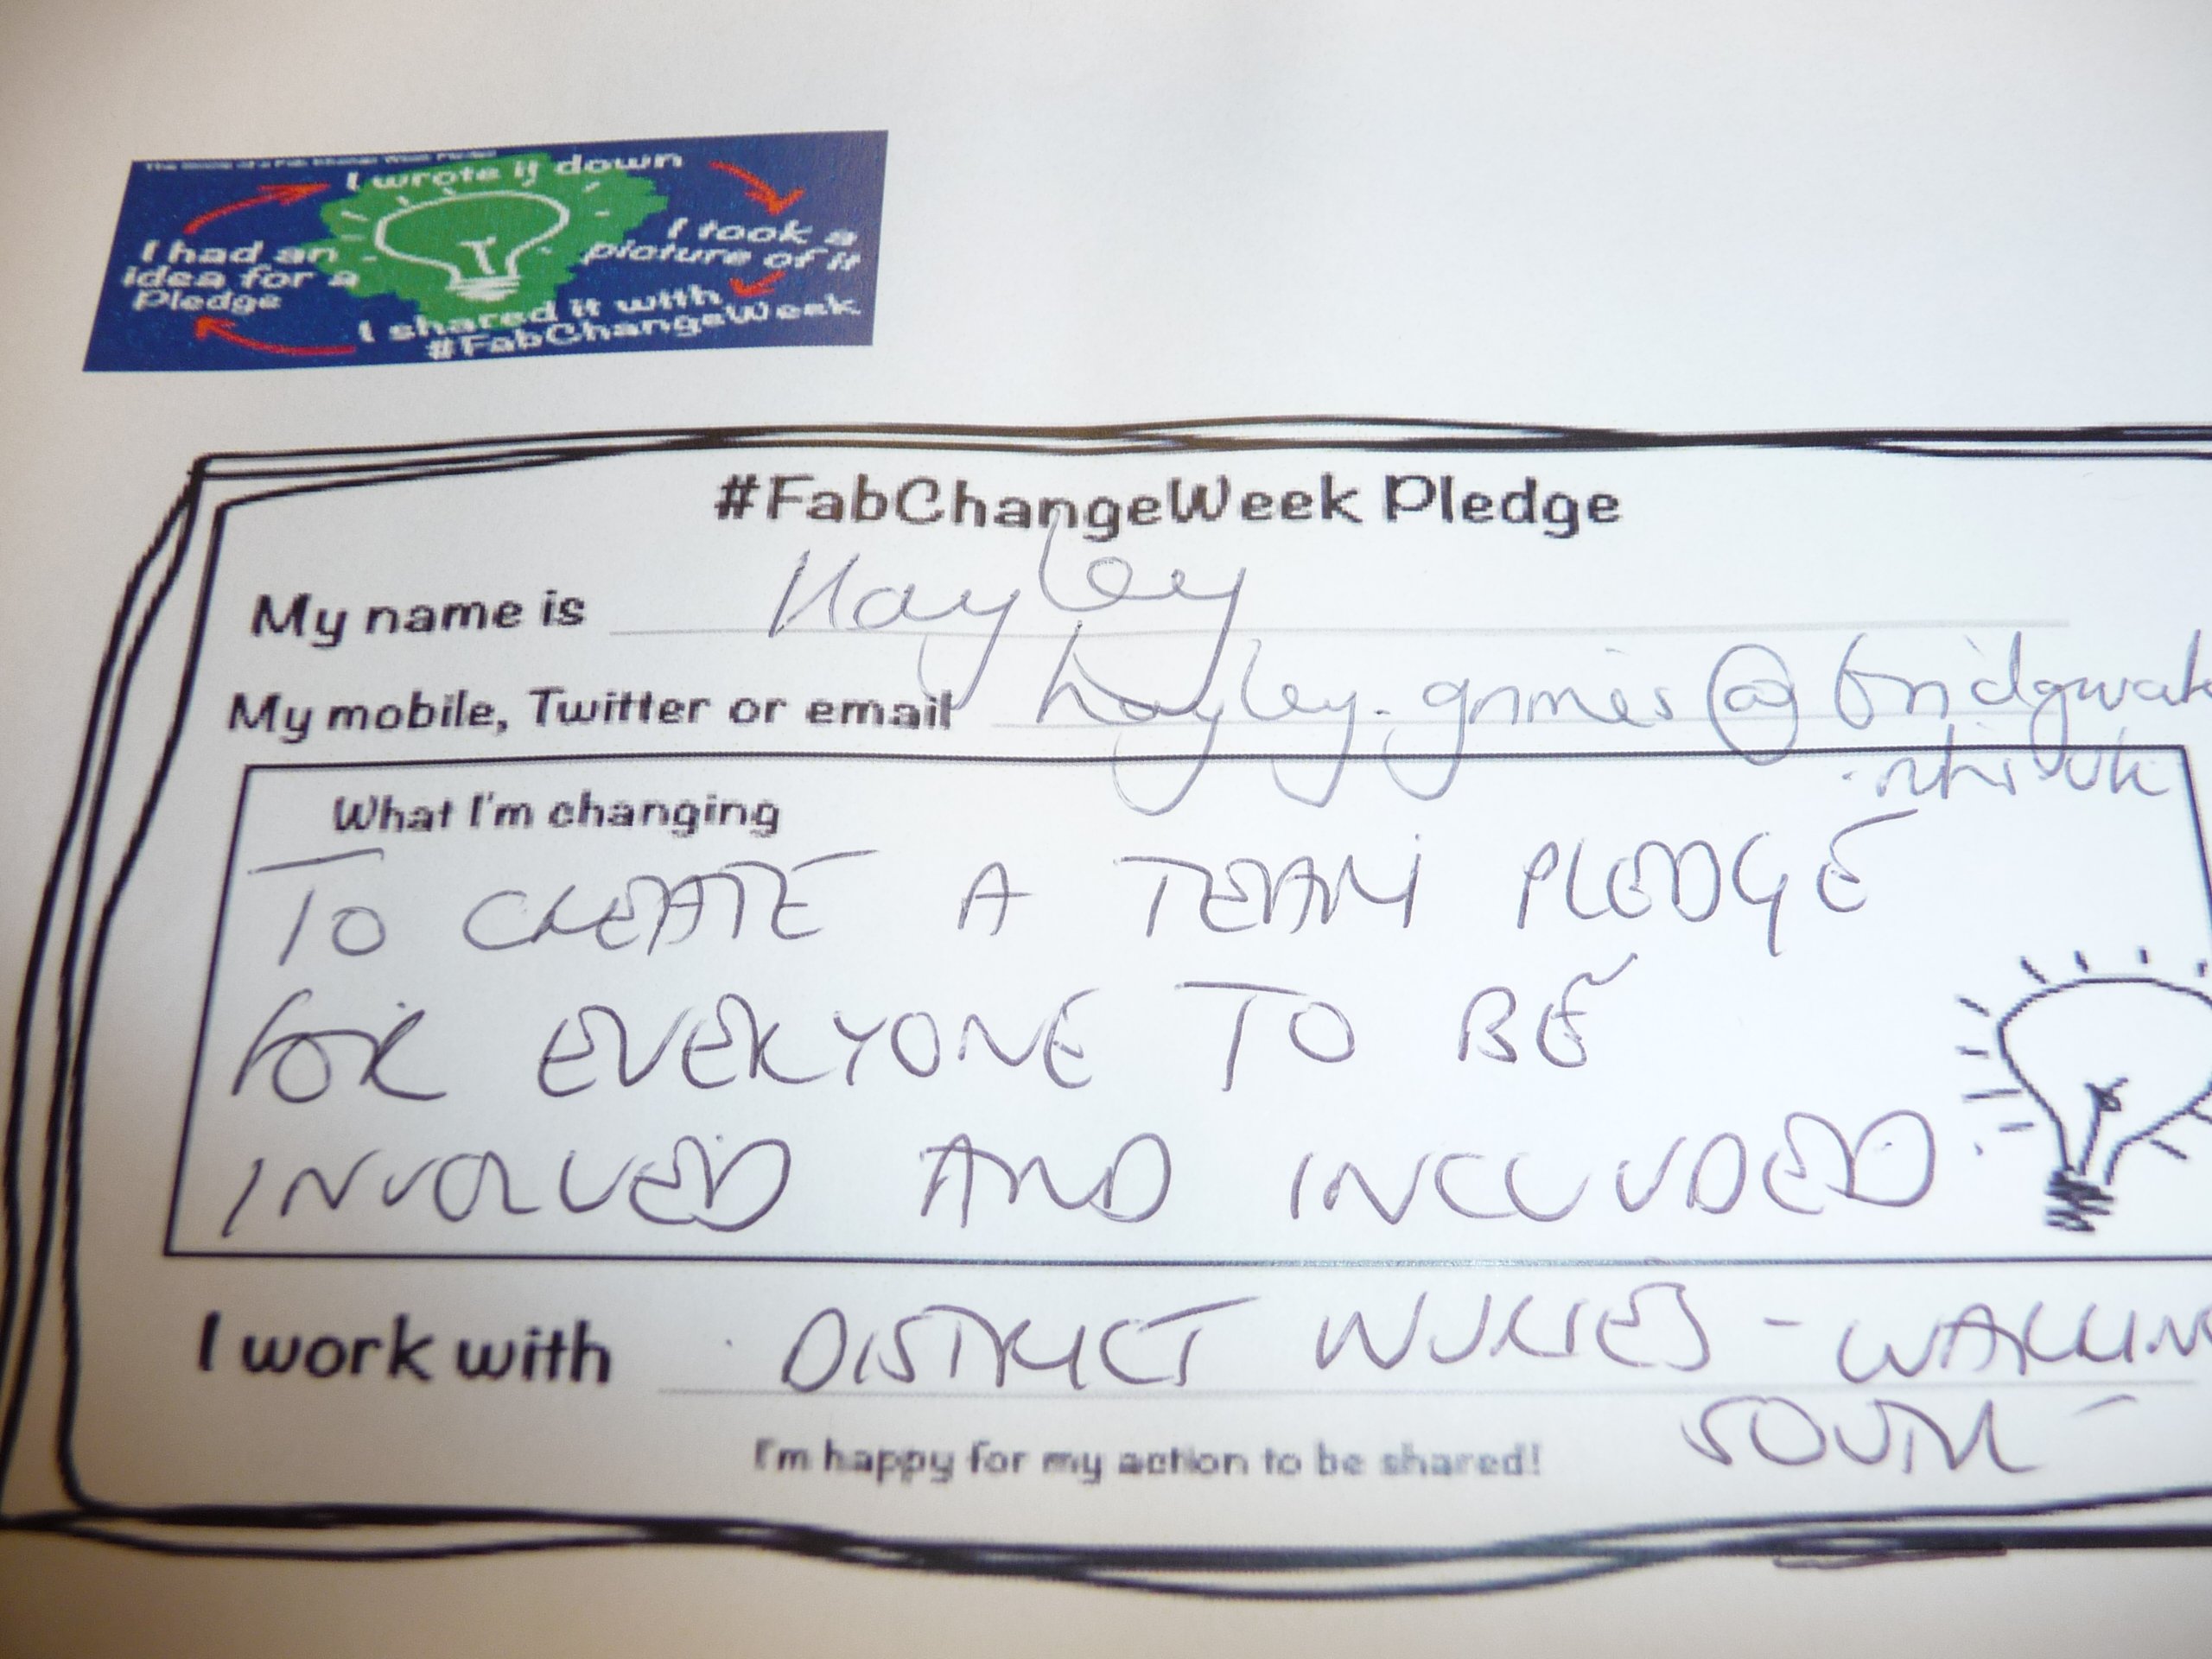 I wrote it down
I took a
picture of it
I shared it with
#FabChangeWeek
I had an
idea for a
Pledge
#FabChangeWeek Pledge
My name is Hayley
My mobile, Twitter or email hayley.grimes@bridgewat
.nhs.uk
What I'm changing
TO CREATE A TEAM PLEDGE
FOR EVERYONE TO BE
INVOLVED AND INCLUDED
I work with DISTRICT NURSES -
SOUTH
I'm happy for my action to be shared!